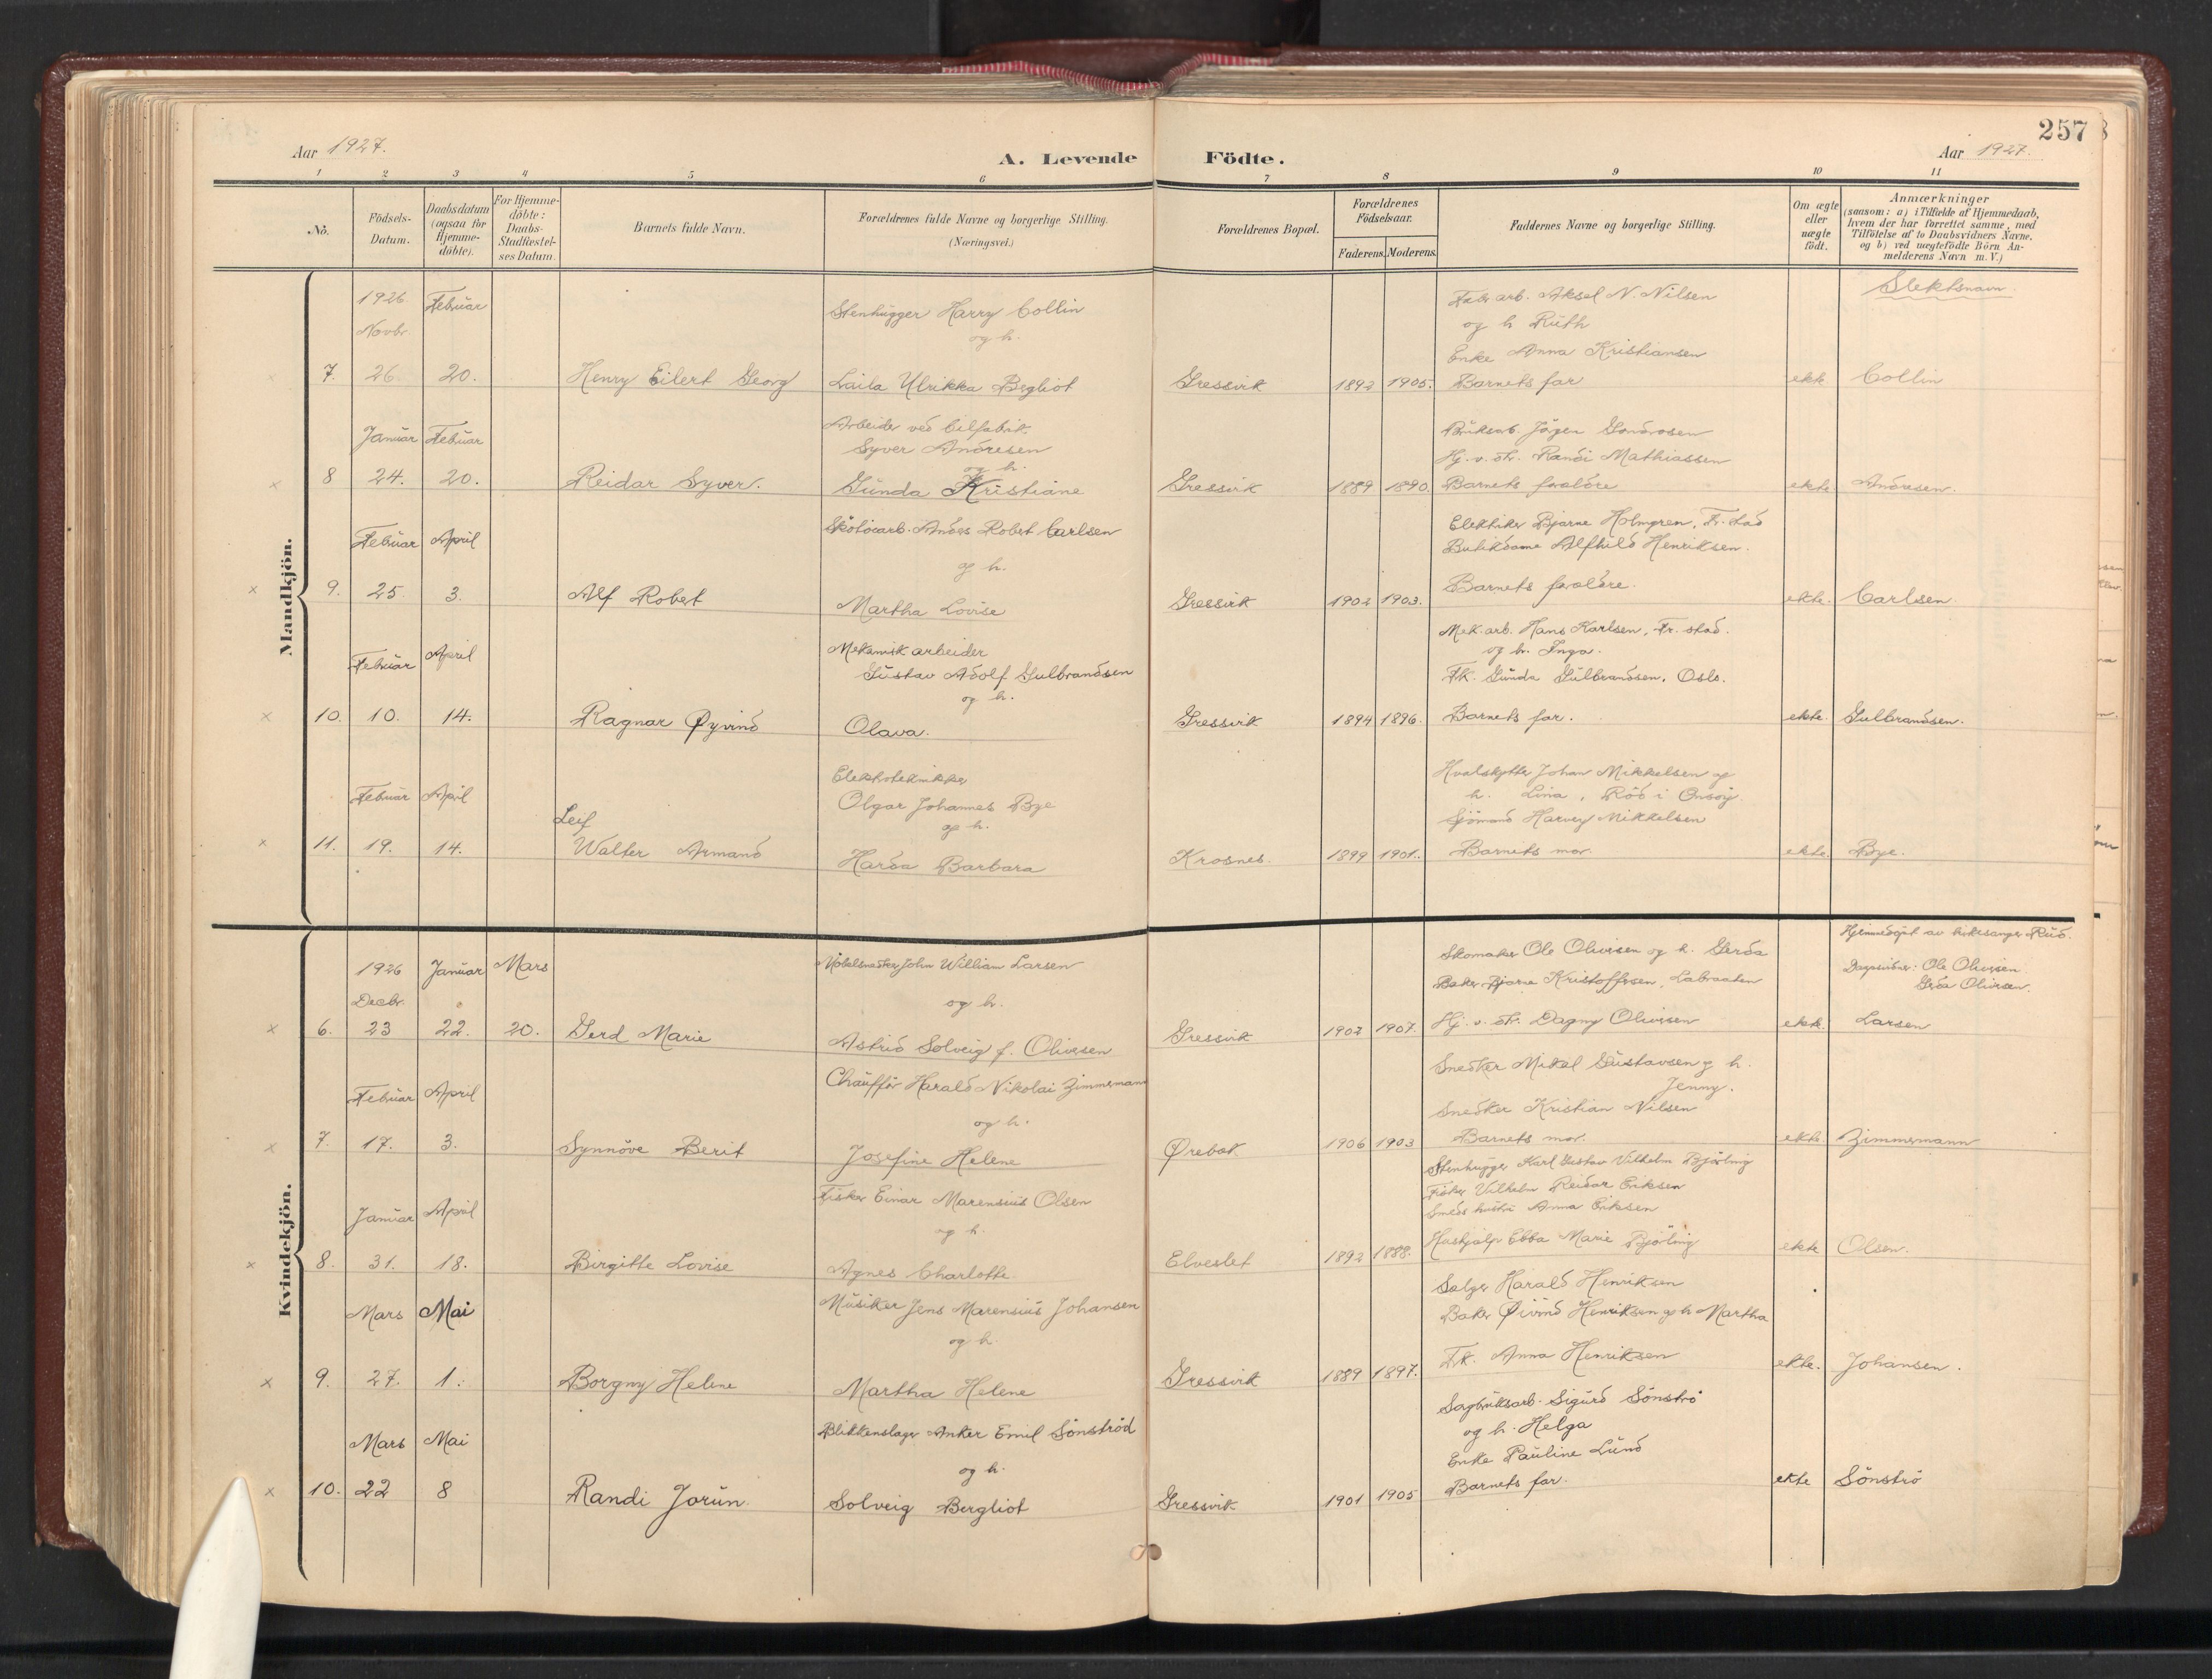 257
Aar 1927.
A. Levende Födte.
Aar 1927.
1 2 3 4 5 6 7 8 9 10 11
No.
Födsels-Datum.
Daabsdatum (ogsaa for Hjemme-döbte).
For Hjemme-döbte: Daabs-Stadfæstel-ses Datum.
Barnets fulde Navn.
Forældrenes fulde Navne og borgerlige Stilling.
(Næringsvei.)
Forældrenes Bopæl.
Forældrenes Födselsaar.
Faderens. Moderens.
Faddernes Navne og borgerlige Stilling.
Om ægte eller uægte født.
Anmærkninger
(saasom: a) i Tilfælde af Hjemmedaab,
hvem der har forrettet samme, med
Tilföielse af to Daabsvidners Navne,
og b) ved uægtefödte Börn An-
melderens Navn m. V.)
Mandkjön.
Slektsnavn.
1926 Februar
Novbr.
Stenhugger Harry Collin
og h.
Fabr arb. Aksel N. Nilsen
og h Ruth
Enke Anna Kristiansen
7. 26. 20. Henry Eilert Georg Laila Ulrikka Bergliot Gressvik 1892 1905. Barnets far ekte Collin
Januar Februar
Arbeider ved
Syver Andresen
og h.
Bruksarb. Jørgen
Hj. v. str. Randi Mathiassen
8 24. 20. Reidar Syver. Gunda Kristiane Gressvik 1889 1890. Barnets foreldre ekte Andresen.
Februar April
Anders Robert Carlsen
og h.
Elektriker Bjarne Holmgren, Fr. stad
Butikdame Alfhild Henriksen.
9. 25. 3. Alf Robert Martha Lovise Gressvik 1902 1903. Barnets foreldre. ekte. Carlsen.
Februar April
Mekanisk arbeider
Gustav Adolf Gulbrandsen
og h.
Mek. arb. Hans Karlsen, Fr. stad.
og h. Inga.
Frk. Gunda Gulbrandsen, Oslo.
10. 10. 14. Ragnar Øyvind Olava. Gressvik 1894 1896. Barnets far. ekte. Gulbrandsen.
Februar April
Elektrotekniker
Olgar Johannes Bye
og h.
Hvalskytter Johan Mikkelsen og
h. Lina, Röd i Onsöy
Sjömand Harvey Mikkelsen
Leif
11. 19. 14. Walter Armand Harda Barbara Krosnes. 1899 1901. Barnets mor. ekte. Bye.
Kvindekjön.
1926 Januar Mars
Decbr.
Møbelsnedker John William Larsen
og h.
Skomaker Ole Oliversen og h. Gerda
Baker Bjarne Kristoffersen, Labraaten
Hjemmedøpt av kirkesanger Ruud.
Ole Oliversen
Gerda Oliversen.
6. 23 22. 20. Gerd Marie Astrid Solveig f. Oliversen Gressvik 1902 1907. Hj. v. str. Dagny Oliversen ekte. Larsen
Februar April
Chauffør Harald Nikolai Zimmermann
og h.
Snedker Mikal Gustavsen og h.
Jenny.
Snedker Kristian Nilsen
7. 17. 3. Synnöve Berit Josefine Helene Ørebæk 1906 1903 Barnets mor. ekte Zimmermann
Januar April
Fisker Einar Marensius Olsen
og h.
Stenhugger Karl Gustav Vilhelm Bjørling
Fisker Vilhelm Reidar Eriksen
Smeds hustru Anna Eriksen
8. 31. 18. Birgitte Lovise Agnes Charlotte. Elveslet 1892 1888. Hushjelp Ebba Marie Bjørling ekte Olsen.
Mars Mai
Musiker Jens Marensius Johansen
og h.
Selger Harald Henriksen
Baker Øivind Henriksen og h Martha
9. 27. 1. Borgny Helene Martha Helene Gressvik 1889 1897. Frk. Anna Henriksen ekte. Johansen.
Mars Mai
Blikkenslager Anker Emil Sönströd
og h.
Sagbruksarb. Sigurd Sönströ
og h. Helga
Enke Pauline Lund
10. 22 8 Randi Jorun. Solveig Bergliot Gressvik 1901 1905 Barnets far. ekte Sönströ